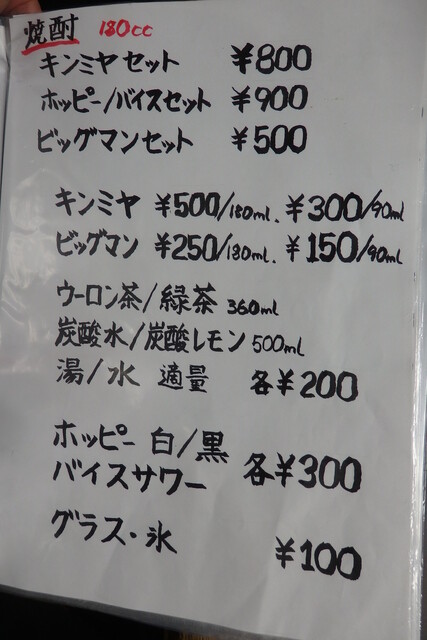 焼酎 180cc
キンミヤセット ¥800
ホッピー/バイスセット ¥900
ビッグマンセット ¥500
キンミヤ ¥500/180ml. ¥300/90ml
ビッグマン ¥250/180ml. ¥150/90ml
ウーロン茶/緑茶 360ml
炭酸水/炭酸レモン 500ml
湯/水 適量 各¥200
ホッピー 白/黒
バイスサワー 各¥300
グラス・氷
¥100